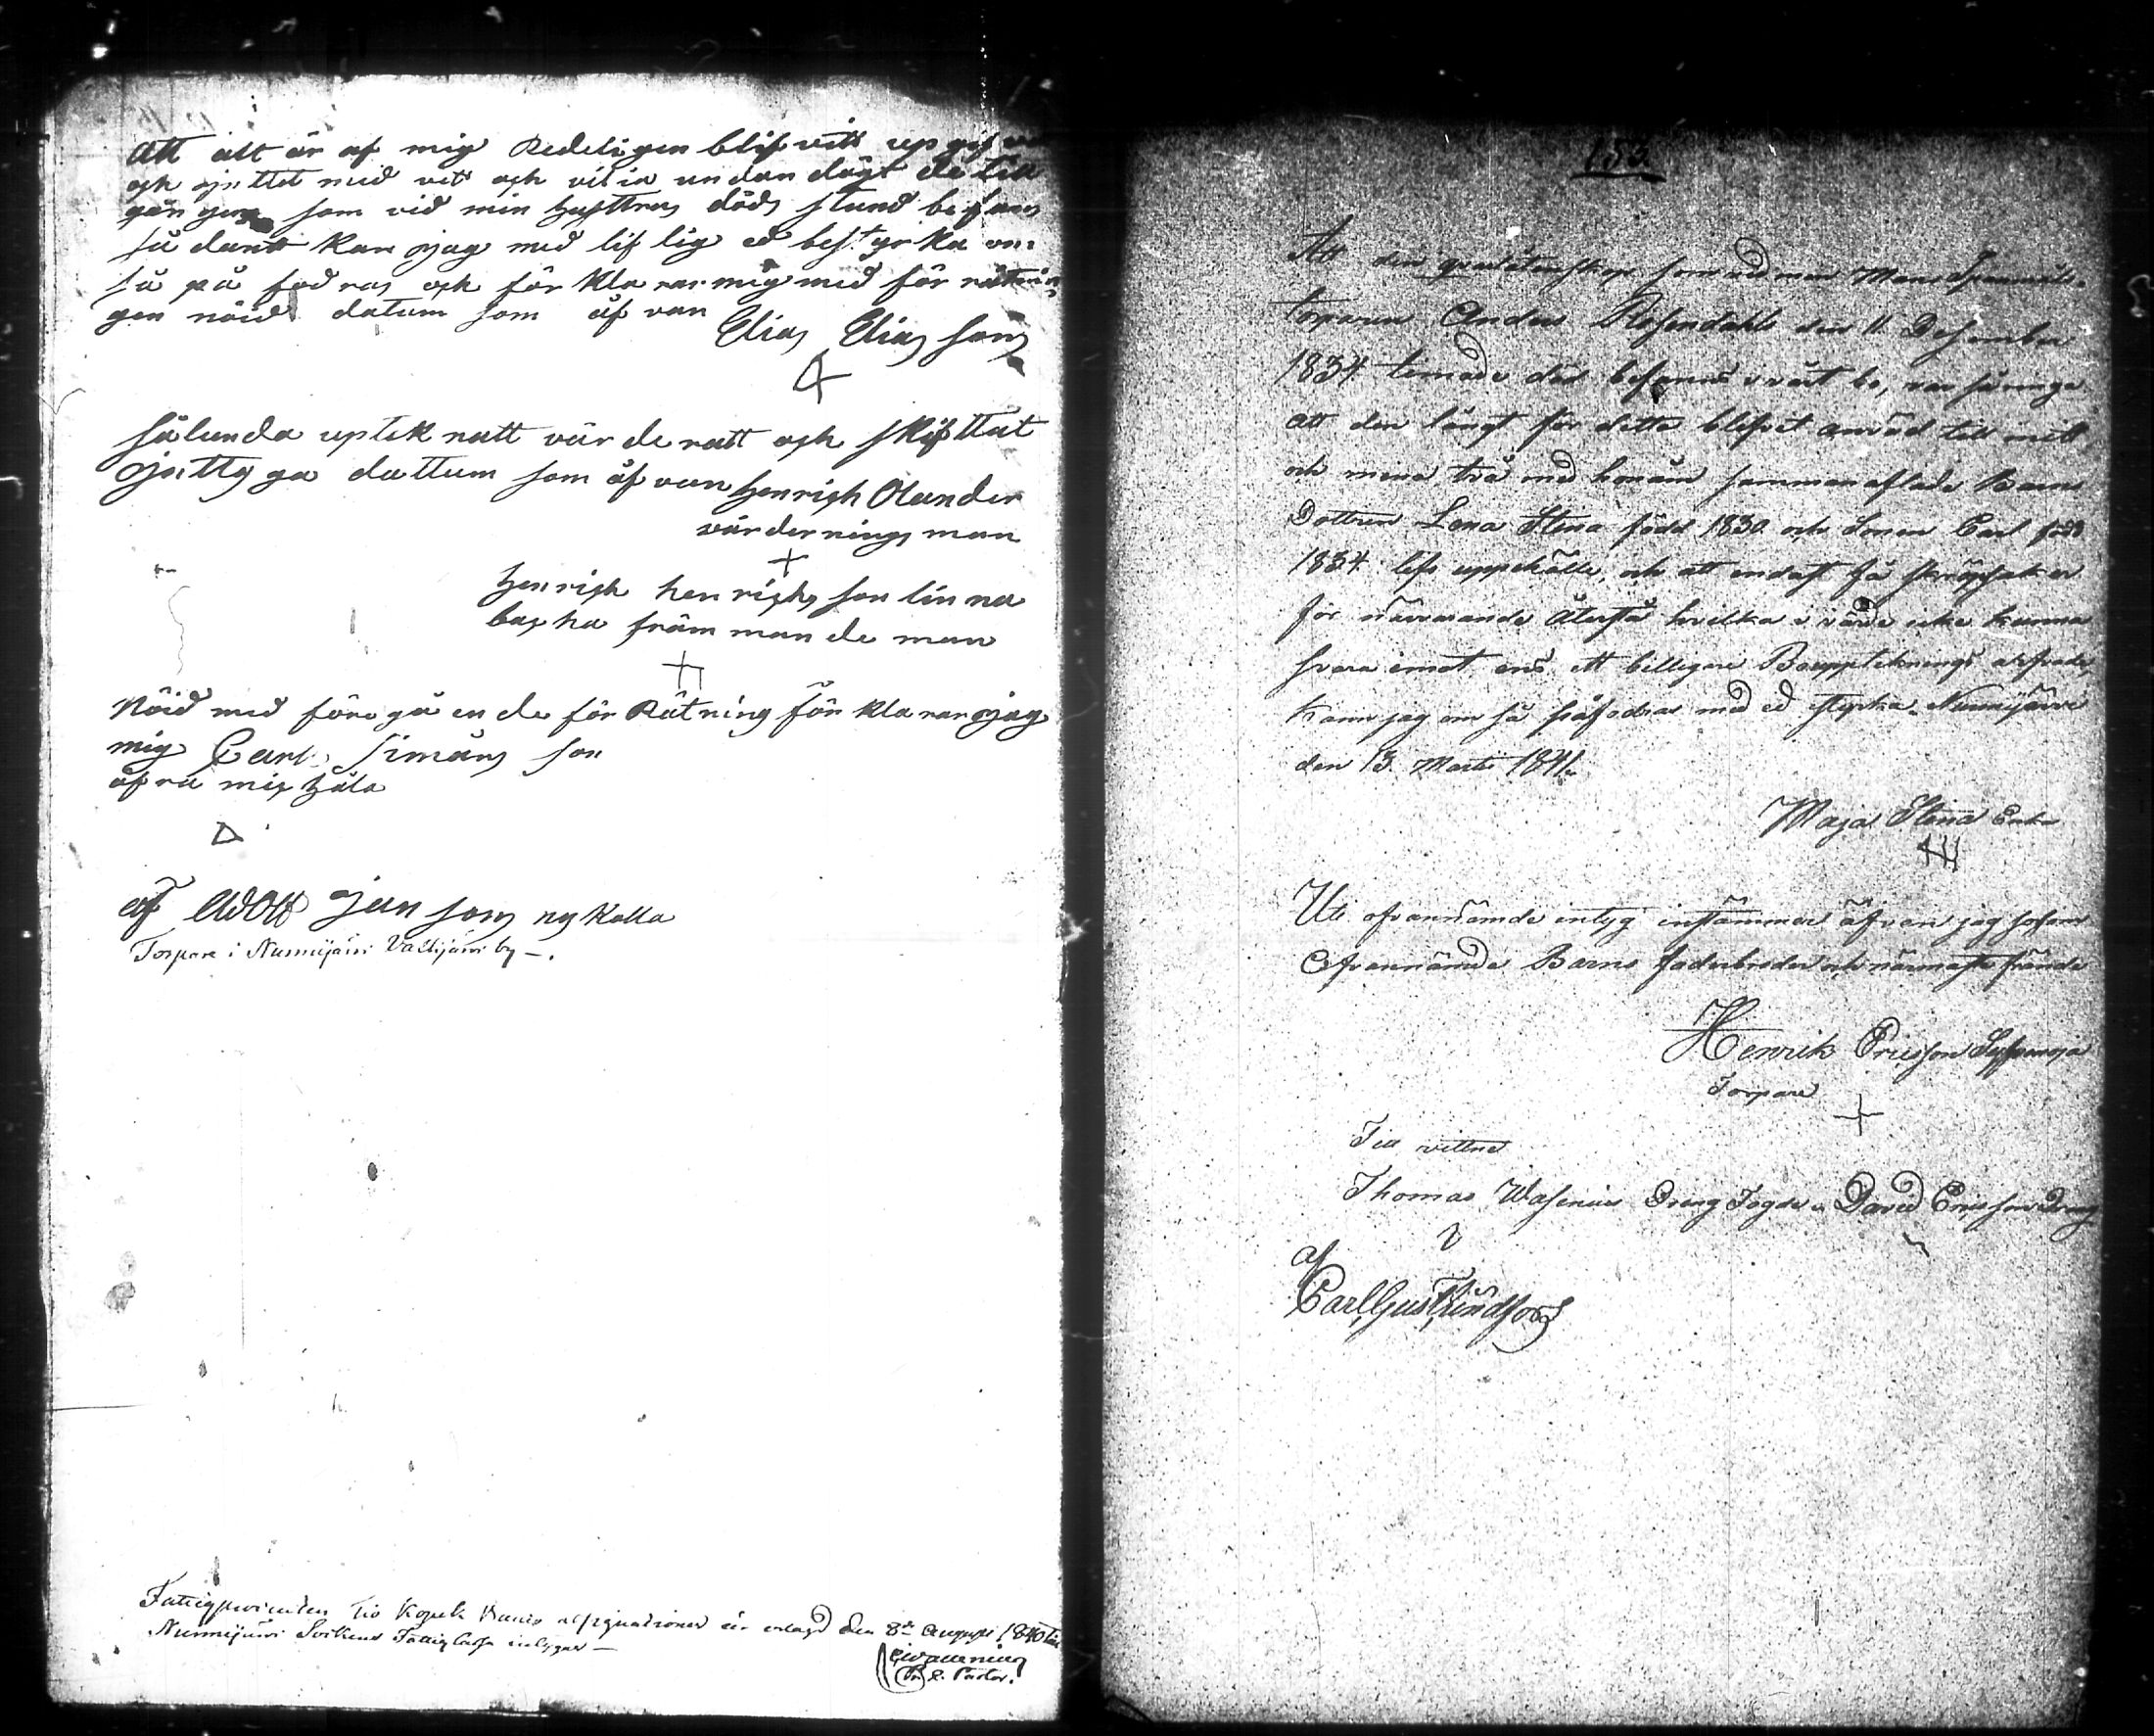 Att alt är af mig Redeligen blifvitt up gif
och ojuttet med vet och vilia undan dögt de till
gången som vid min hustrus döds stund befans
så dant kan jag med lif lig ed bestyrka om
så på fodras och för kla rar mig med för rätnin
gen nöid datum som åf van
Elias Elias sons
så lunda uptek natt vär de ratt och skifttat
ojattyga dattum som åf van Henrich Olander
värdernings man
Henrich hen richs son lin na
bacha främ man de man
Nöid med före gå en de för Rätning för kla rar ojag
mig Carl Simons son
åfra mix häla
af Adolf Jan sons ny kalla
Torpare i Nurmijärvi Valkjärvi by
Fattigprocenten Tio Kopek Banco assignationer är erlagd den 8de Augusti 1840 till
Nurmijärvi Sockens Fattig Cassa intygar
Pastor.
153
Att den qvarlåtenskap som vid min Mans
torparen Anders Rosendahls den 11 December
1834 timade död befanns i värt bo, var så ringa
att den längst för detta blifvet använd till mitt
och mina två med honom sammanaflade Barns
Dottren Lena Stina född 1830 och Sonen Carl född
1834 lifs uppehälle, och att endast få skräpsaker
för närvarande återstå hvilka i värde icke kunna
svara emot ens ett billigare Bouppteknings arfvode,
kann jag om så påfodras med ed styrka. Nurmijärvi
den 13 Martii 1841.
Maja Stina Enka
Uti ofvannämde intyg instämmer äfven jag såsom
Ofvannämde Barns faderbroder och närmaste frände
Henrik Ericsson
Torpare
Till vittne
Thomas Wasenius Dreng Fogde David Ericsson Dreng
af
Carl Gust Lindfors